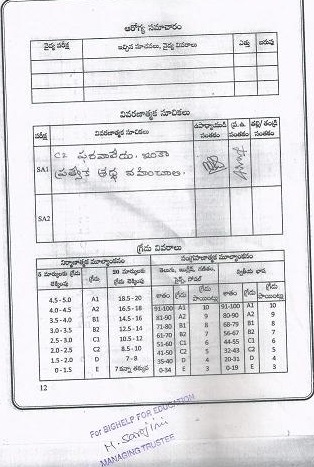 ఆరోగ్య సమాచారం
వైద్య పరీక్ష ఇచ్చిన సూచనలు, వైద్య వివరాలు ఎత్తు బరువు
వివరణాత్మక సూచికలు
పరీక్ష వివరణాత్మక సూచికలు ఉపాధ్యాయుడి సంతకం ప్ర.ఉ. సంతకం తల్లి/ తండ్రి సంతకం
SA1 C2 ఇంకా
వహించాలి.
SA2
గ్రేడు వివరాలు
నిర్మాణాత్మక మూల్యాంకనం సంగ్రహణాత్మక మూల్యాంకనం
5 మార్కులకు లెక్కింపు గ్రేడు 20 మార్కులకు లెక్కింపు తెలుగు, ఇంగ్లీష్, గణితం, సైన్స్, సోషల్ ద్వితీయ భాష
శాతం గ్రేడు గ్రేడు పాయింట్లు శాతం గ్రేడు గ్రేడు పాయింట్లు
4.5 - 5.0 A1 18.5 - 20 91-100 A1 10 91-100 A1 10
4.0 - 4.5 A2 16.5 - 18 81-90 A2 9 80-90 A2 9
3.5 - 4.0 B1 14.5 - 16 71-80 B1 8 68-79 B1 8
3.0 - 3.5 B2 12.5 - 14 61-70 B2 7 56-67 B2 7
2.5 - 3.0 C1 10.5 - 12 51-60 C1 6 44-55 C1 6
2.0 - 2.5 C2 8.5 - 10 41-50 C2 5 32-43 C2 5
1.5 - 2.0 D 7 - 8 35-40 D 4 20-31 D 4
0 - 1.5 E 7 కన్నా తక్కువ 0-34 E 3 0-19 E 3
12
For BIGHELP FOR EDUCATION
M. Sarojini
MANAGING TRUSTEE